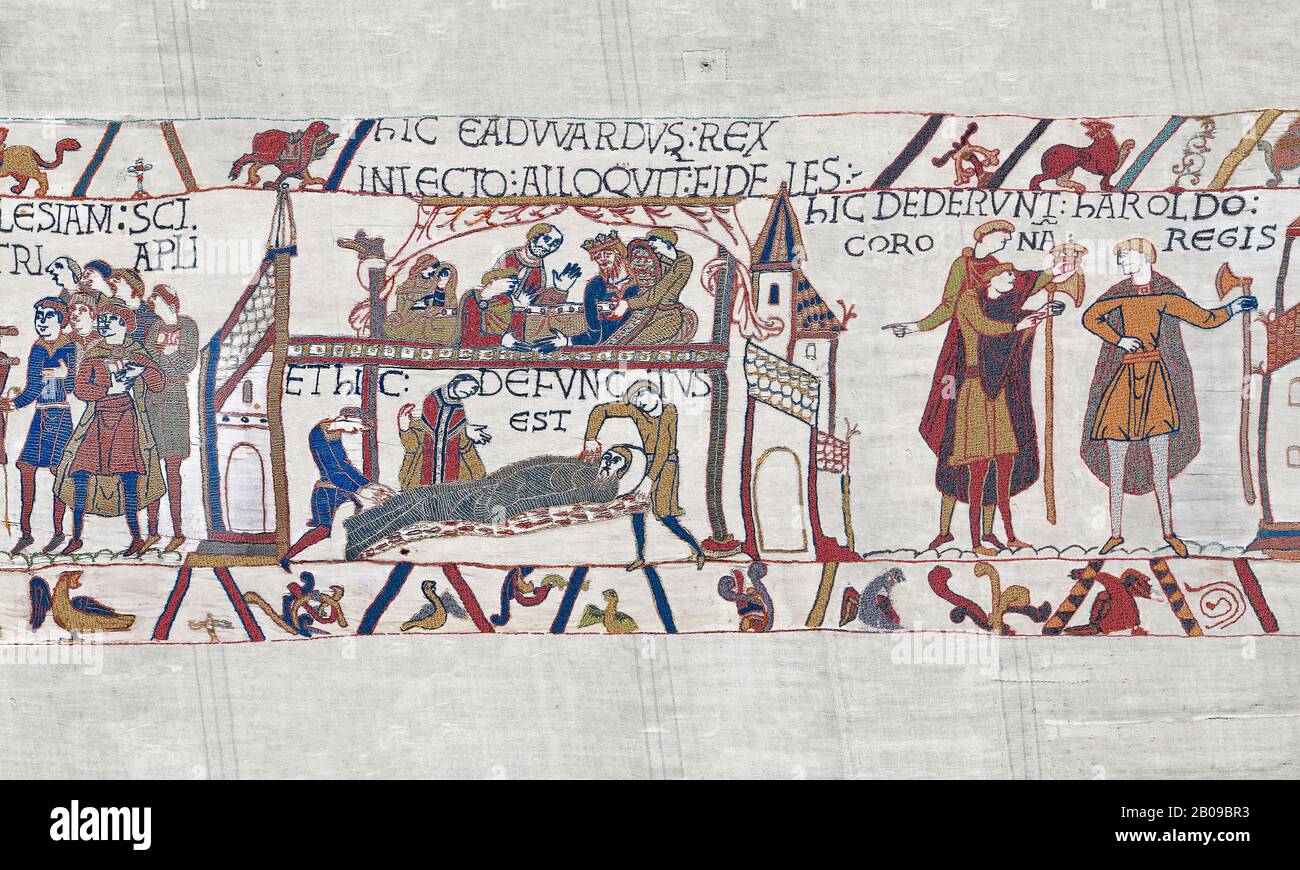 hIC EADVVARDVS: REX
INLECTO: ALLOQVIT: FIDELES:
LESIAM: SCI.
TRI APLI
ET hIC: DEFVNCTVS
EST
hIC DEDERVNT: hAROLDO:
CORONĀ: REGIS
alamy
Image ID: 2B09BR3
www.alamy.com